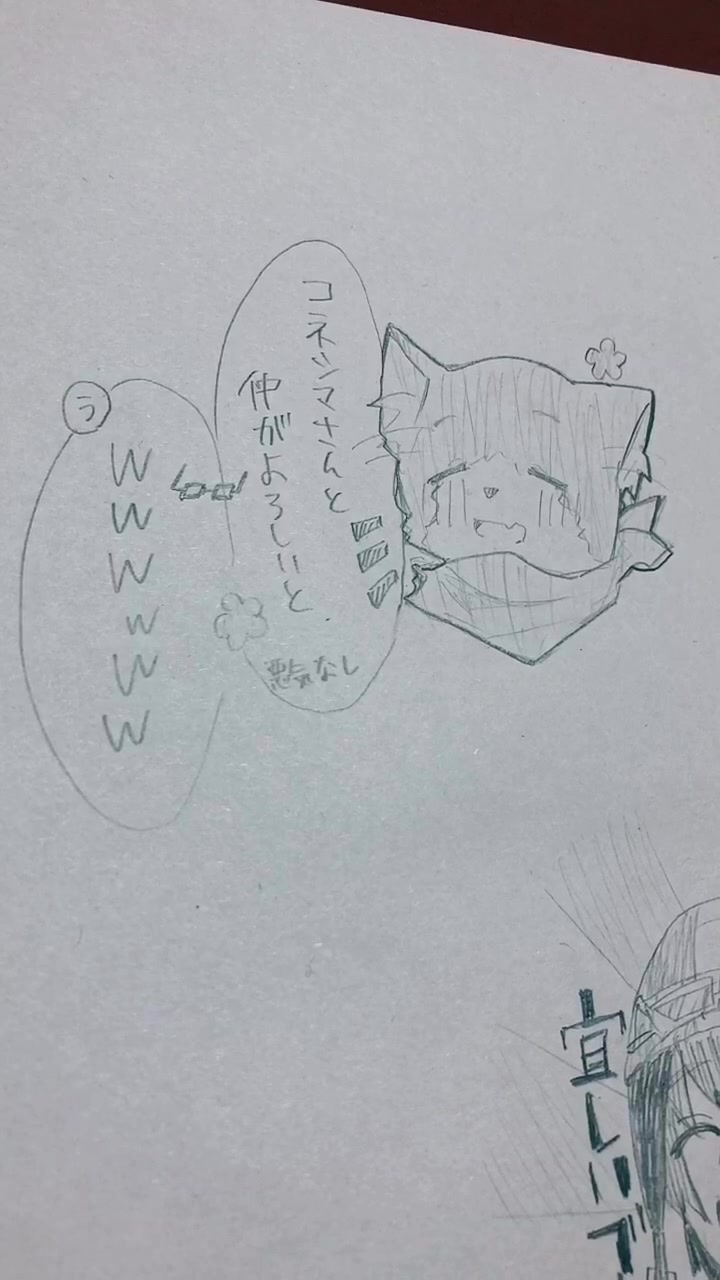 コネシマさんと
仲がよろしいと
悪気なし
う
wwwwww
宜しいで